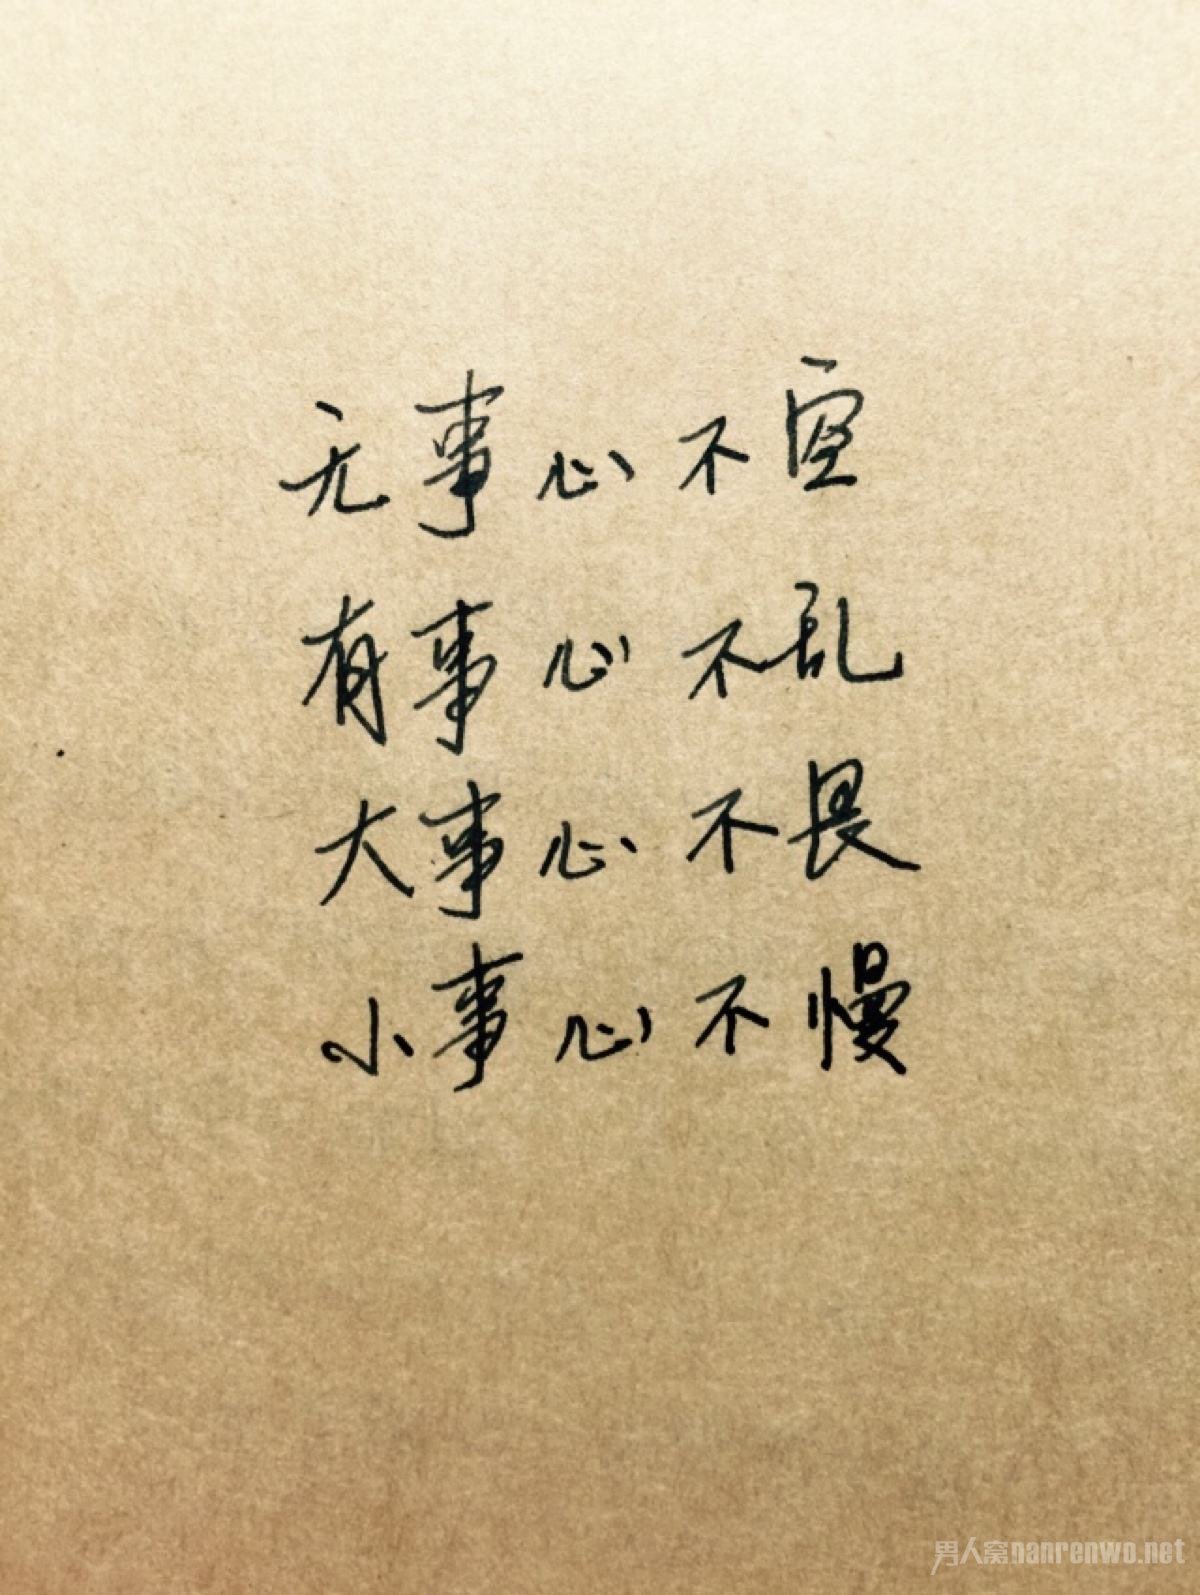 无事心不空
有事心不乱
大事心不畏
小事心不慢
男人窝nanrenwo.net